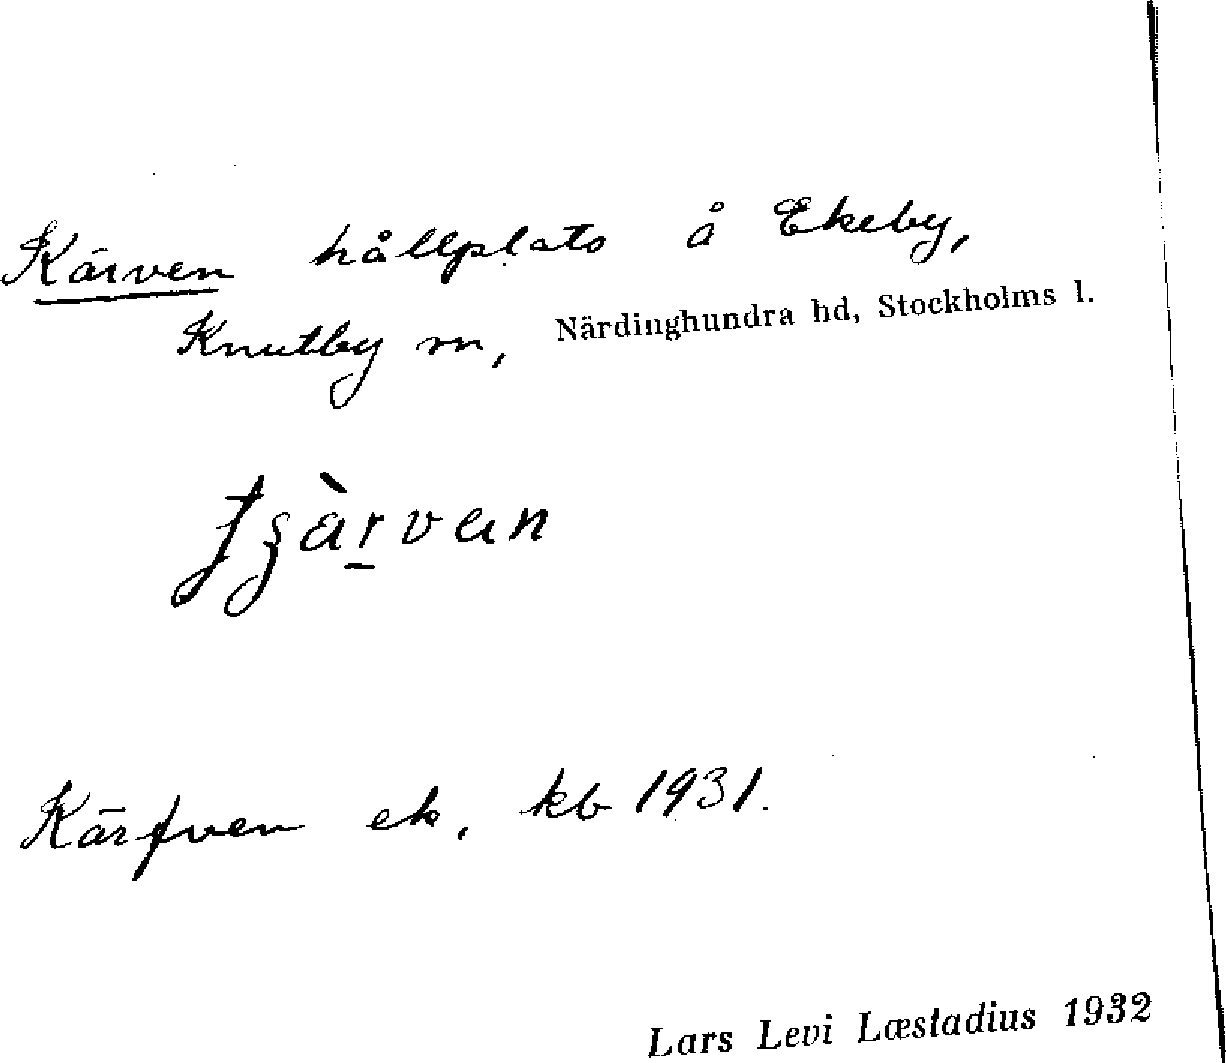 Kärven hållplats å Ekeby,
Knutby sn, Närdinghundra hd, Stockholms l.
Kärfven ek. kb 1931.
Lars Levi Læstadius 1932